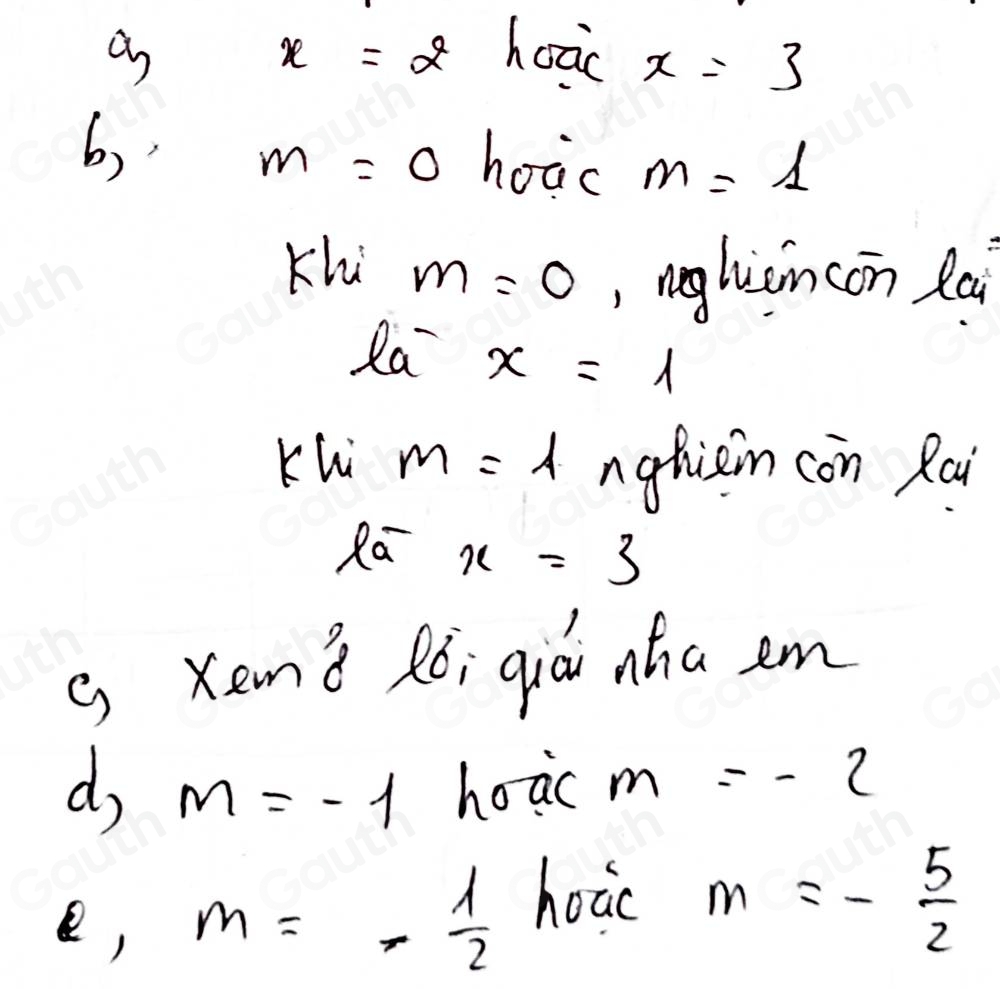 a, x = 2 hoặc x = 3
b, m = 0 hoặc m = 1
Khi m = 0, nghiệm còn lại
là x = 1
Khi m = 1 nghiệm còn lại
là x = 3
c, Xem ở lời giải nha em
d, m = -1 hoặc m = -2
e, m = -\frac{1}{2} hoặc m = -\frac{5}{2}
Gauth